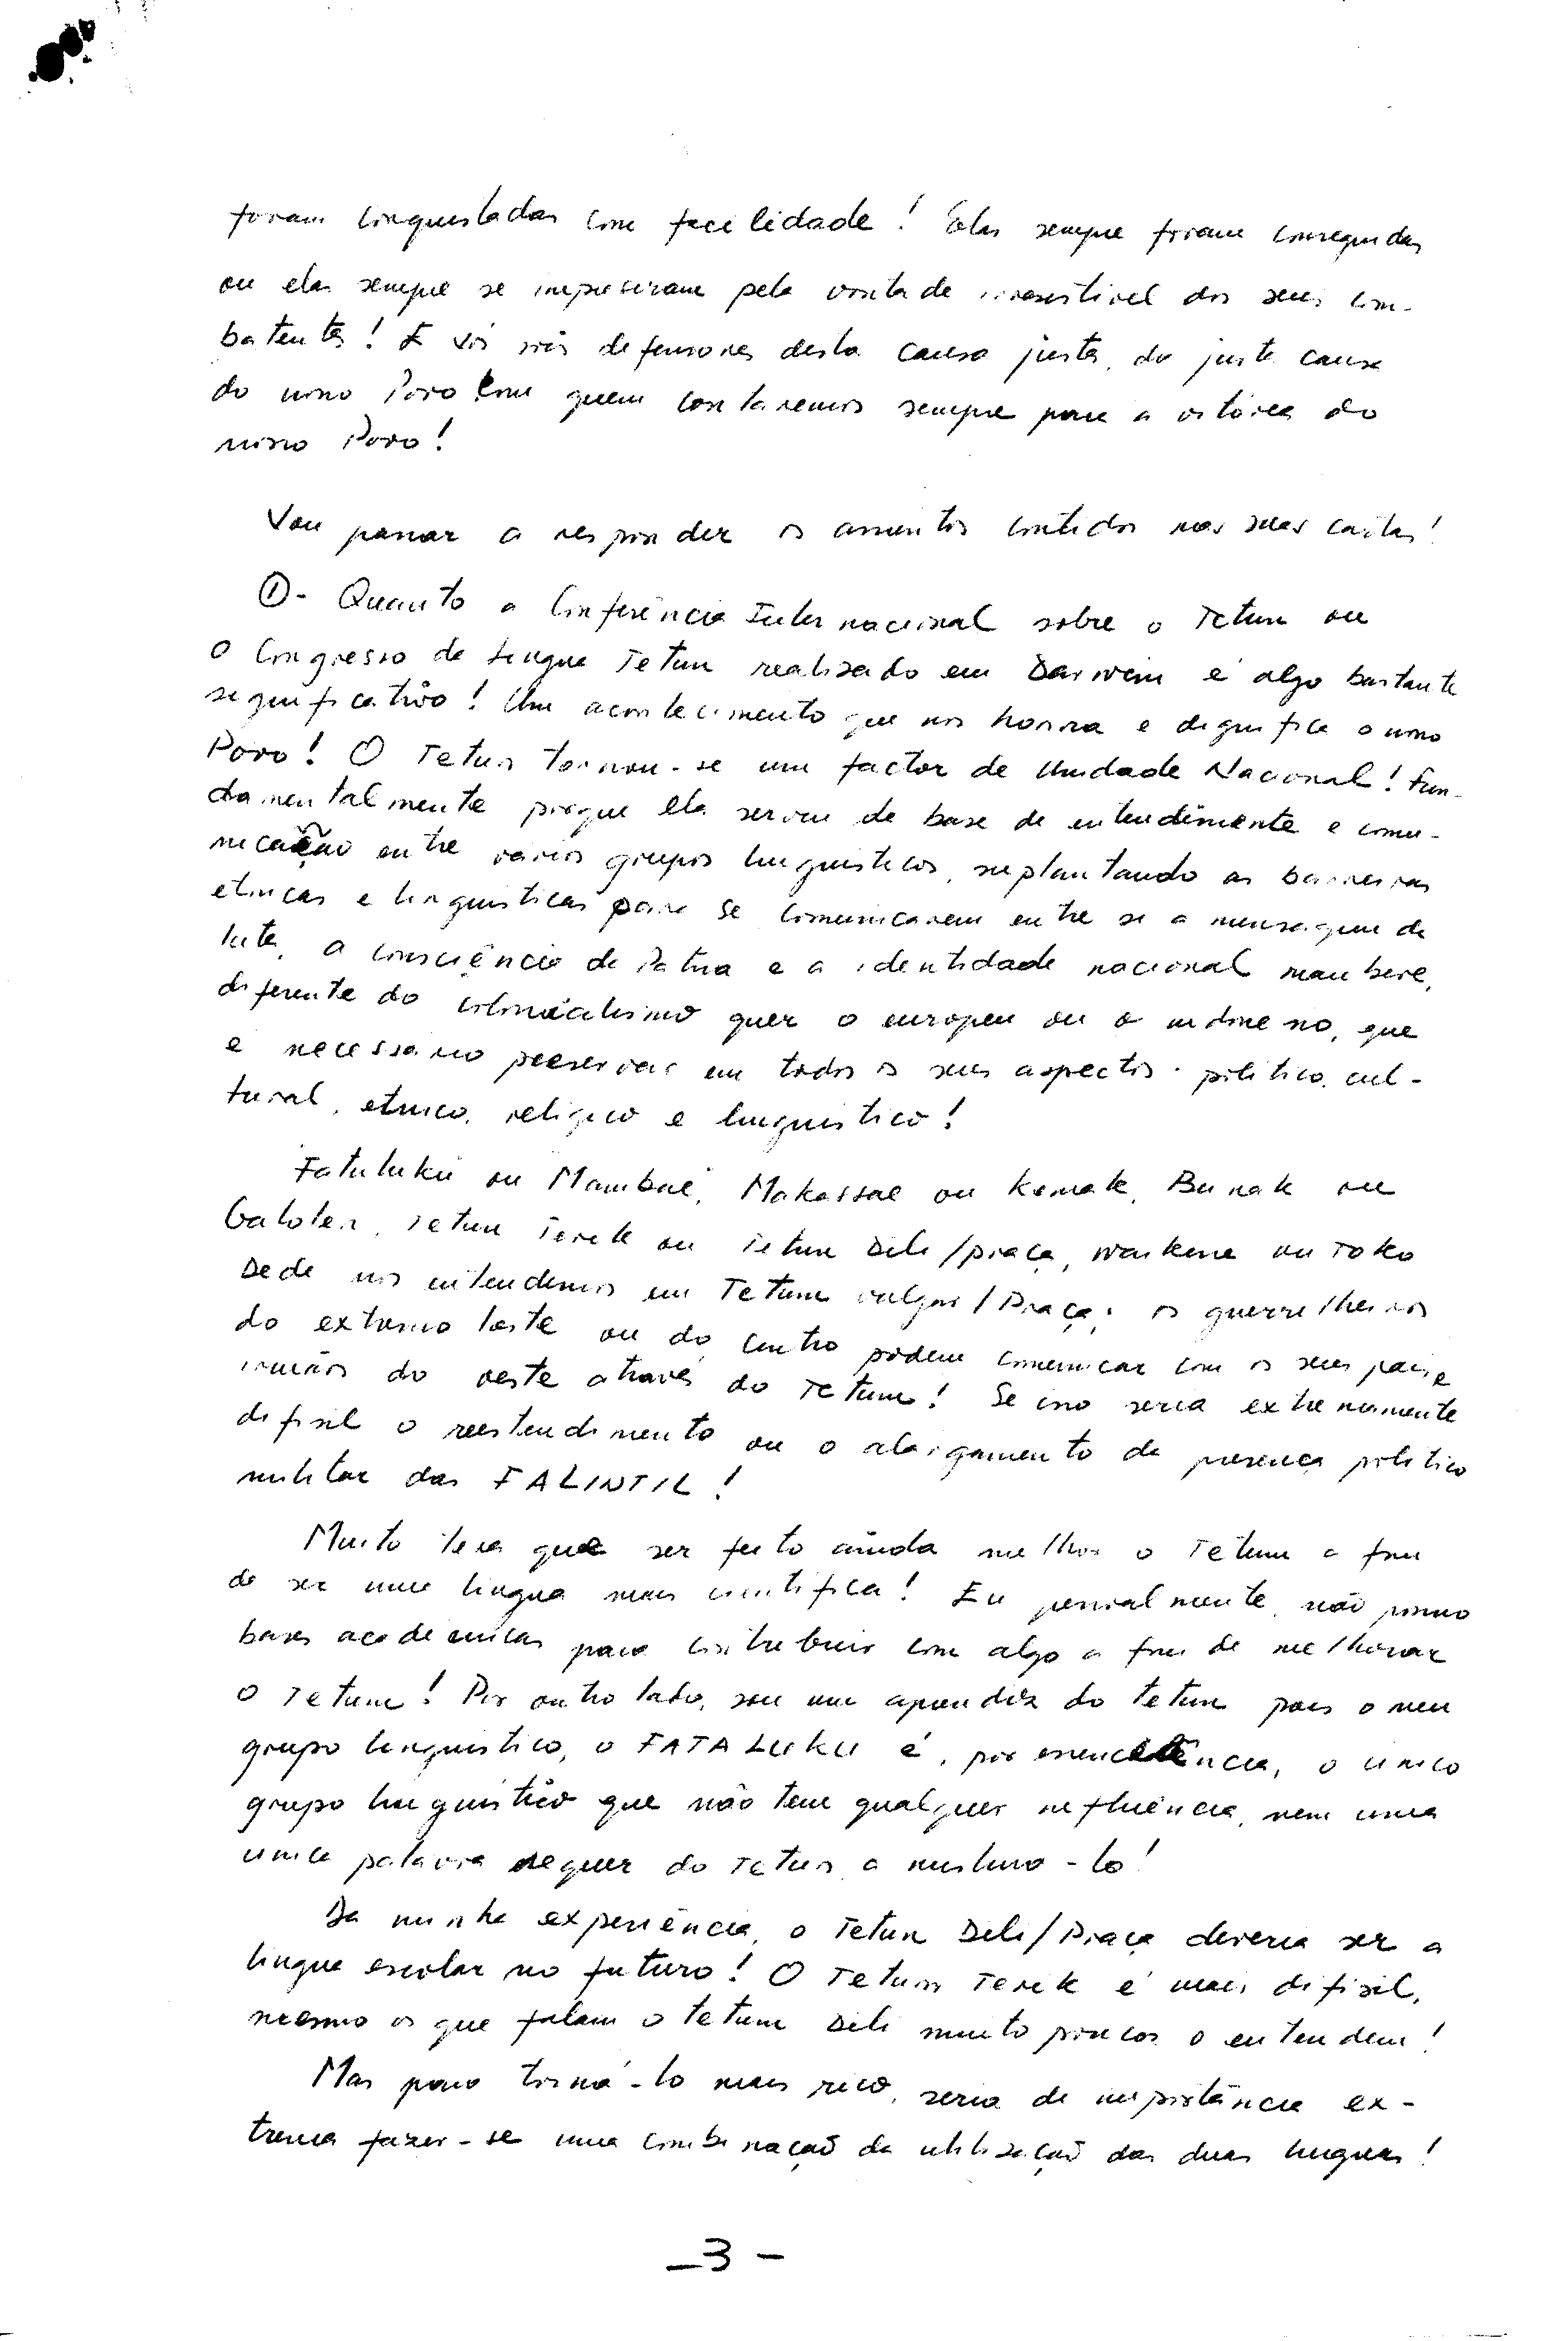 foram conquistadas com facilidade! Elas sempre foram conseguidas
ou elas sempre se impuseram pela vontade irresistivel dos seus com-
batentes! E vós sois defensores desta causa justa, da justa causa
do nosso Povo com quem contaremos sempre para a vitória do
nosso Povo!
Vou passar a responder os assuntos contidos nas suas cartas!
① - Quanto a Conferência Internacional sobre o Tetum ou
o Congresso da lingua Tetum realizado em Darwin é algo bastante
significativo! Um acontecimento que nos honra e dignifica o nosso
Povo! O Tetum tornou-se um factor de Unidade Nacional! Fun-
damentalmente porque ela serviu de base de entendimento e comu-
nicação entre varios grupos linguisticos, suplantando as barreiras
etnicas e linguisticas para se comunicarem entre si a mensagem da
luta, a consciência da Patria e a identidade nacional maubere,
diferente do colonialismo quer o europeu ou o indonesio, que
e necessario preservar em todos os seus aspectos: politico, cul-
tural, etnico, religioso e linguistico!
Fataluku ou Mambae, Makassae ou Kemak, Bunak ou
Galolen, Tetum Terek ou Tetum Dili/praça, Waikene ou Toko
Dede nos entendemos em Tetum vulgar/Praça; os guerrilheiros
do extremo leste ou do centro podem comunicar com os seus pais e
irmãos do oeste através do Tetum! Se isso seria extremamente
difisil o reestendimento ou o alargamento da presença politico
militar das FALINTIL!
Muito tera que ser feito ainda melhor o Tetum a fim
de ser uma lingua mais cientifica! Eu pessoalmente, não possuo
bases academicas para contribuir com algo a fim de melhorar
o Tetum! Por outro lado, sou um aprendiz do tetum pois o meu
grupo linguistico, o FATALUKU é, por ência, o unico
grupo linguistico que não tem qualquer influência, nem uma
unica palavra sequer do Tetum a mistura-lo!
Da minha experiência, o Tetum Dili/Praça deveria ser a
lingua escolar no futuro! O Tetum Terek é mais difisil,
mesmo os que falam o tetum Dili muito poucos o entendem!
Mas para torná-lo mais rico, seria de importância ex-
trema fazer-se uma combinação da utilisação das duas linguas!
-3-